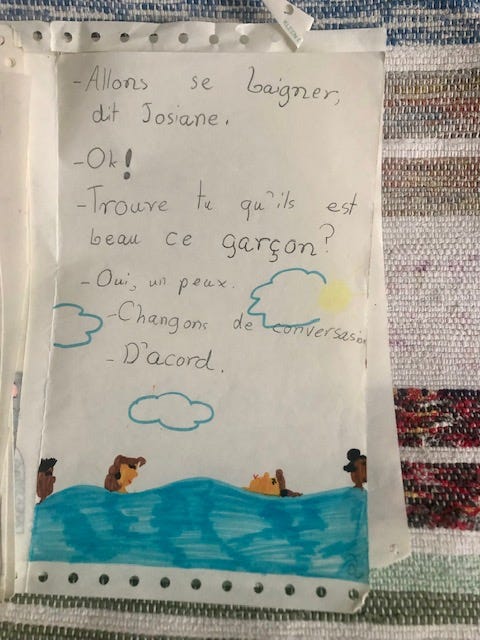 -Allons se baigner,
dit Josiane.
-Ok!
-Trouve tu qu'ils est
beau ce garçon?
-Oui, un peux.
-Changons de conversasion
-D'acord.